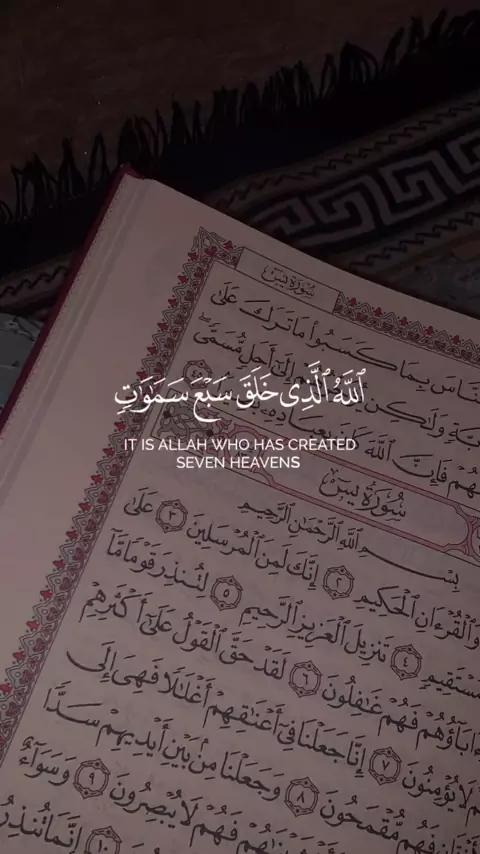 سُورَةُ يسٓ
ٱلنَّاسَ بِمَا كَسَبُوا۟ مَا تَرَكَ عَلَىٰ
وَلَٰكِن إِلَىٰٓ أَجَلٍ مُّسَمًّى
فَإِنَّ ٱللَّهَ
ٱللَّهُ ٱلَّذِى خَلَقَ سَبْعَ سَمَٰوَٰتٍ
IT IS ALLAH WHO HAS CREATED
SEVEN HEAVENS
سُورَةُ يسٓ
بِسْمِ ٱللَّهِ ٱلرَّحْمَٰنِ ٱلرَّحِيمِ
وَٱلْقُرْءَانِ ٱلْحَكِيمِ ٢ إِنَّكَ لَمِنَ ٱلْمُرْسَلِينَ ٣ عَلَىٰ
مُّسْتَقِيمٍ ٤ تَنزِيلَ ٱلْعَزِيزِ ٱلرَّحِيمِ ٥ لِتُنذِرَ قَوْمًا مَّآ
ءَابَآؤُهُمْ فَهُمْ غَٰفِلُونَ ٦ لَقَدْ حَقَّ ٱلْقَوْلُ عَلَىٰٓ أَكْثَرِهِمْ
لَا يُؤْمِنُونَ ٧ إِنَّا جَعَلْنَا فِىٓ أَعْنَٰقِهِمْ أَغْلَٰلًا فَهِىَ إِلَى
فَهُم مُّقْمَحُونَ ٨ وَجَعَلْنَا مِنۢ بَيْنِ أَيْدِيهِمْ سَدًّا
فَهُمْ لَا يُبْصِرُونَ ٩ وَسَوَآءٌ
١٠ إِنَّمَا تُنذِرُ